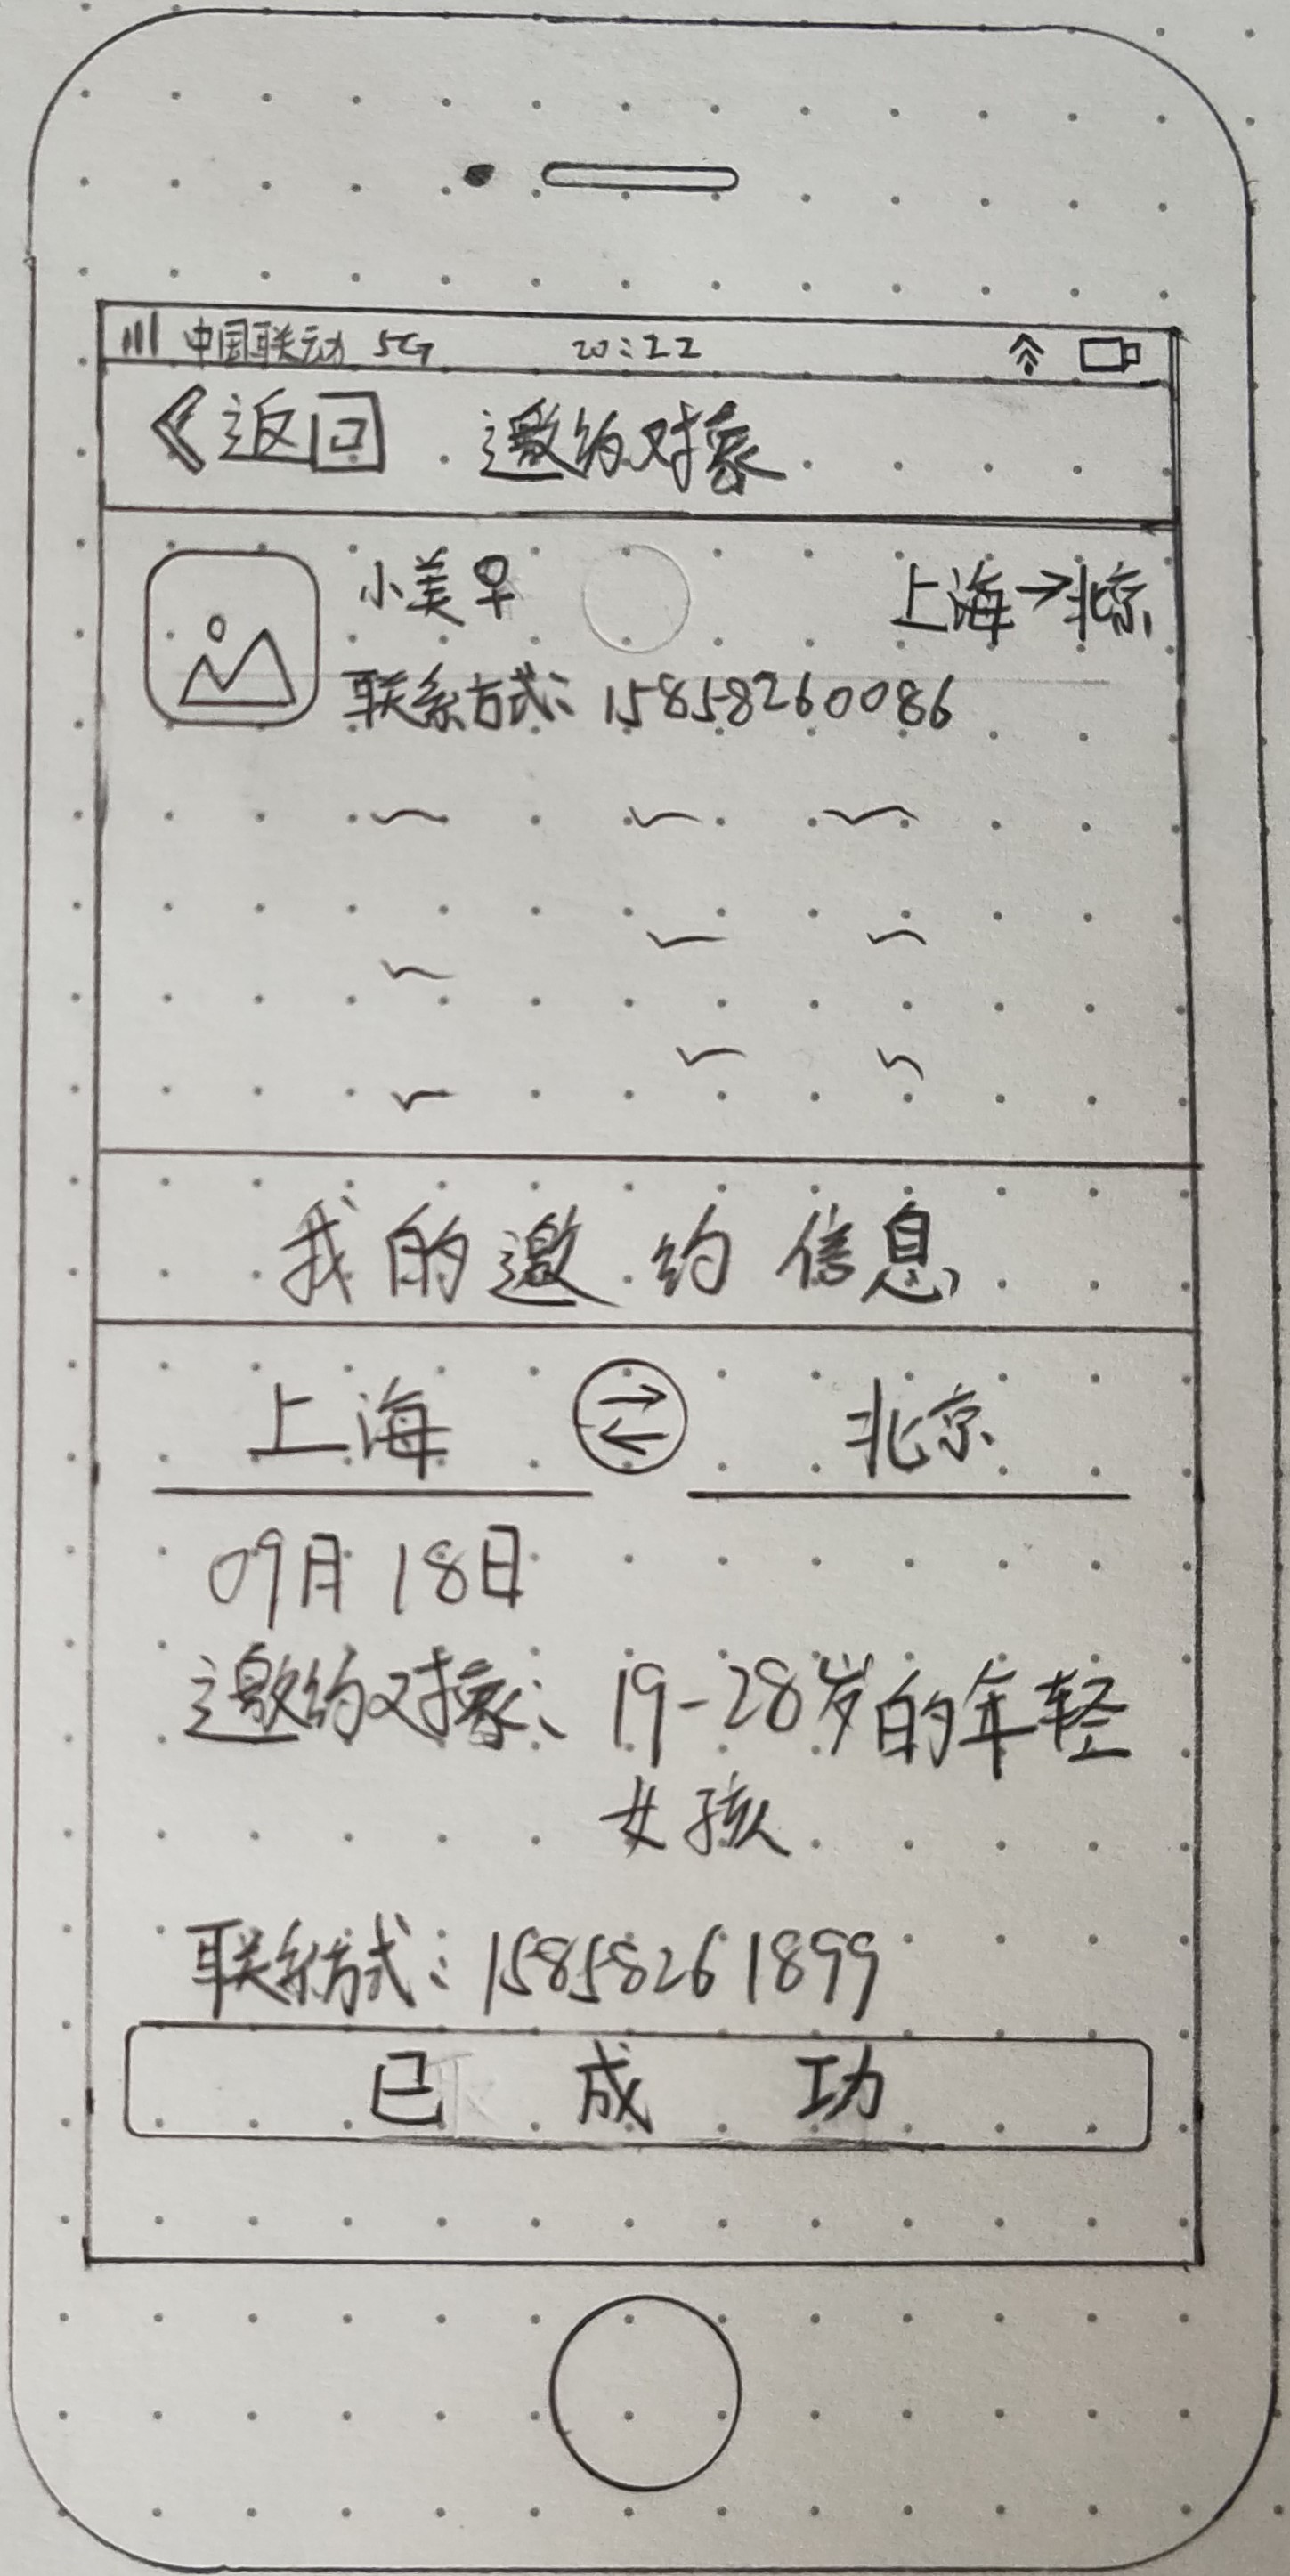 中国联动 5G 20:22
返回 邀约对象
小美♀ 上海→北京
联系方式: 15858260086
我的邀约信息
上海 北京
09月18日
邀约对象: 19-28岁的年轻
女孩
联系方式: 15858261899
已成功